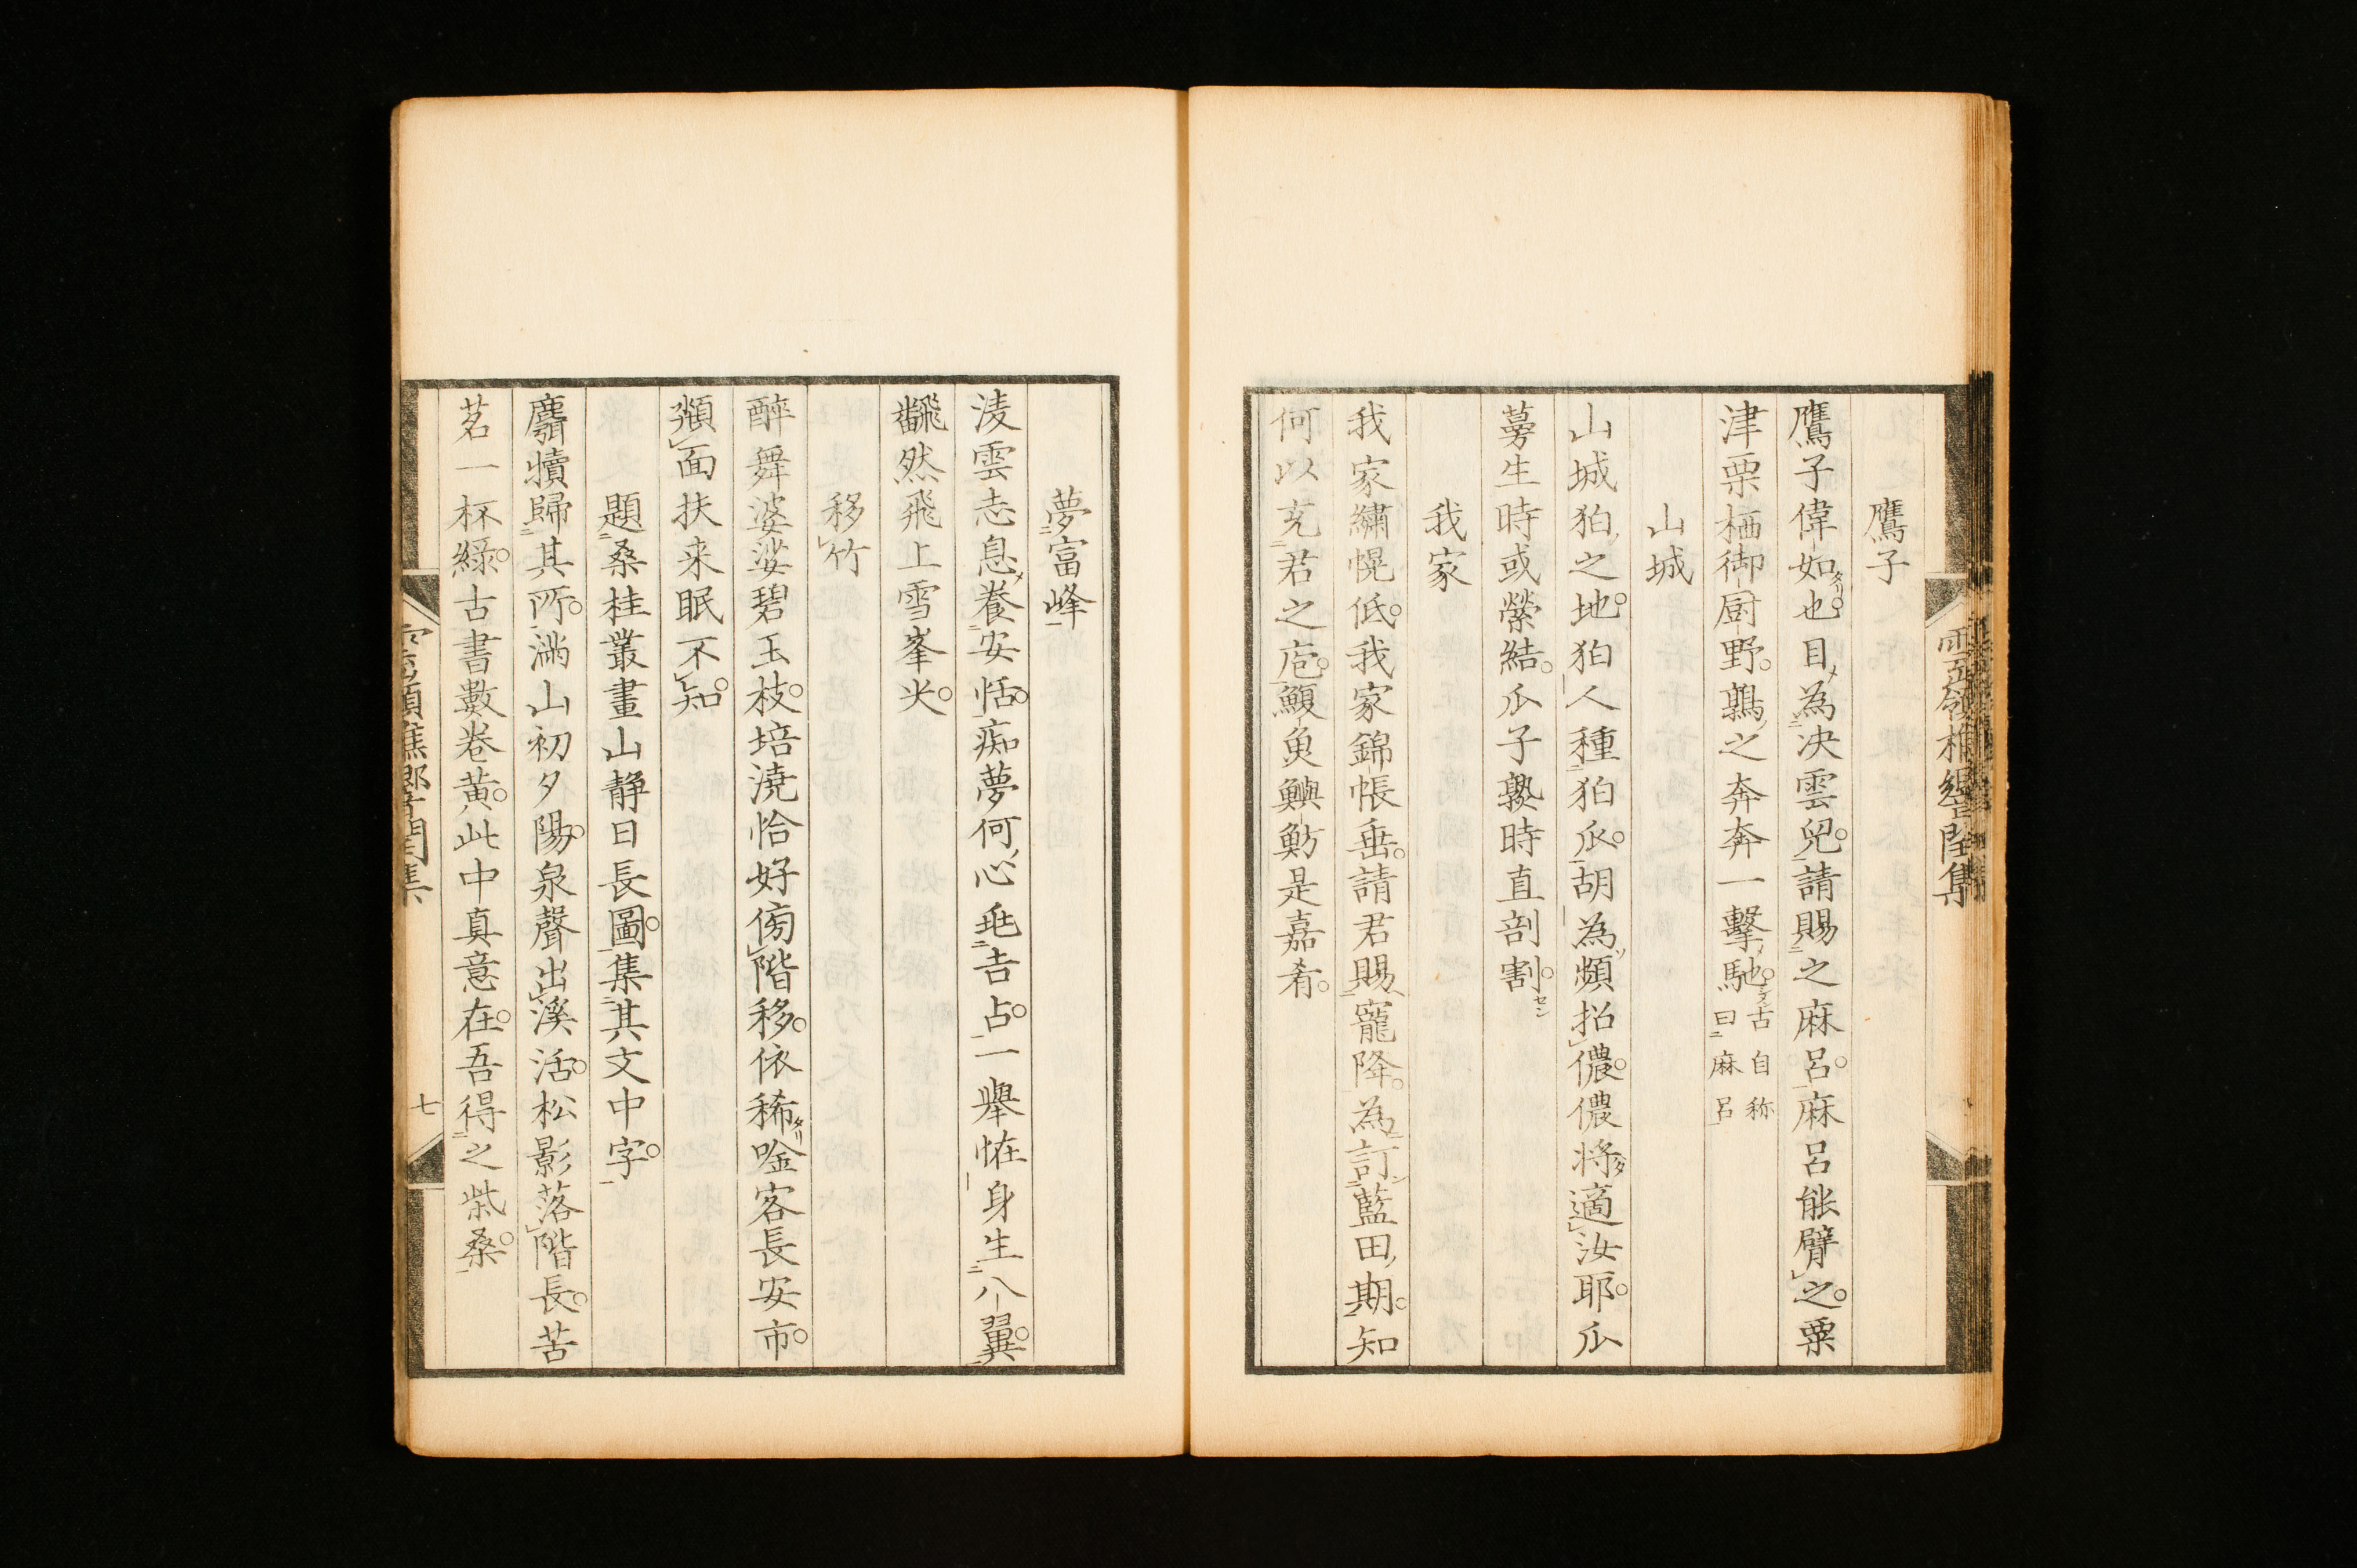 鷹子
鷹子偉如也。目為决雲兒。請賜之麻呂。麻呂能臂之。粟
津栗栖御厨野。鶉之奔奔一擊馳。古自称曰麻呂
山城
山城狛之地。狛人種狛瓜。胡為頻招儂。儂将適汝耶。瓜
蔓生時或縈結。瓜子熟時直剖割。
我家
我家繡幌低。我家錦帳垂。請君賜寵降。為訂藍田期。知
何以充君之庖。鰒魚鱮魴是嘉肴。
夢富峰
淩雲志息養安恬。痴夢何心乖吉占。一舉恠身生八翼。
飜然飛上雪峯尖。
移竹
醉舞婆娑碧玉枝。培澆恰好傍階移。依稀唫客長安市。
頮面扶来眠不知。
題桑桂叢畫山静日長圖。集其文中字。
麛犢歸其所。滿山初夕陽。泉聲出溪活。松影落階長。苦
茗一杯綠。古書數卷黃。此中真意在。吾得之柴桑。
七